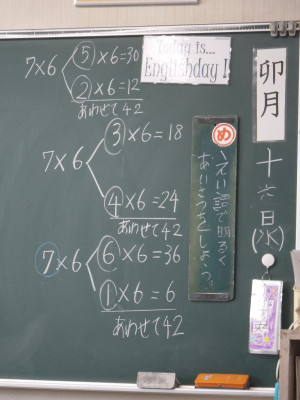 7×6
⑤×6=30
②×6=12
あわせて42
7×6
③×6=18
④×6=24
あわせて42
7×6
⑥×6=36
①×6=6
あわせて42
Today is...
Englishday!
め
えい語で明るく
あいさつをしよう。
卯月
十六日(水)